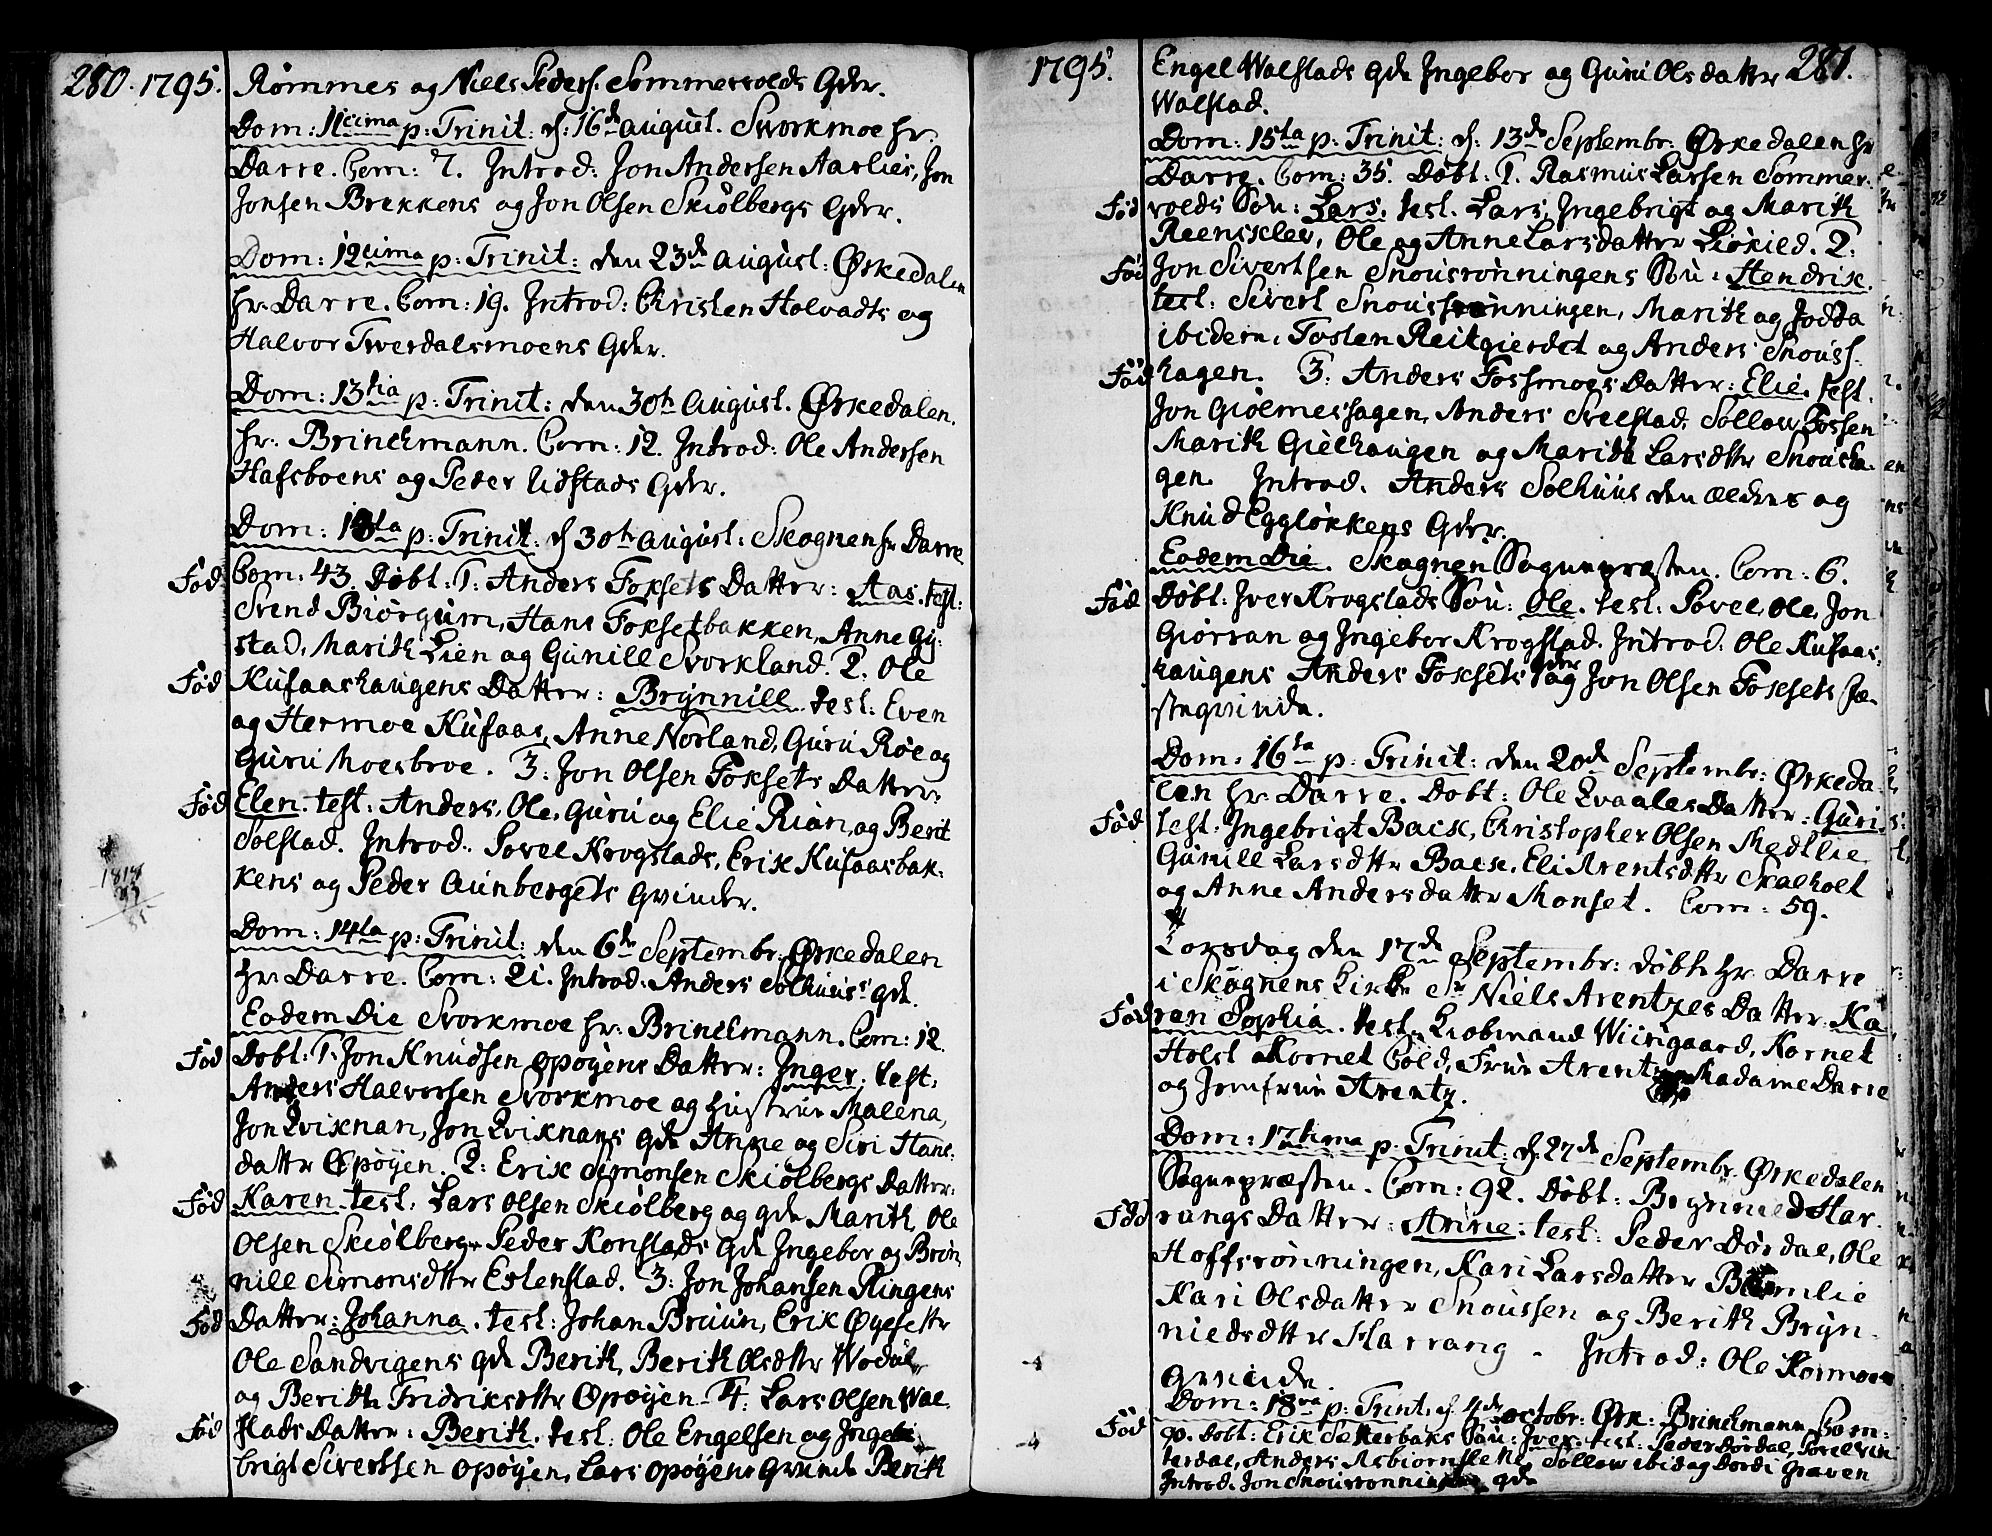 280. 1795.
Rømmes og Niels Peders. Sommervolds Qder.
Dom: 11cima p: Trinit: d: 16de August. Svorkmoe hr.
Darre. Com: 7. Introd: Jon Andersen Aarlies, Jon
Jonsen Brekkens og Jon Olsen Skiølbergs Qder.
Dom: 12cima p: Trinit: den 23de August: Ørkedalen
hr. Darre. Com: 19. Introd: Christen Holvadts og
Halvor Tverdalsmoens Qder.
Dom: 13tia p: Trinit: den 30te August. Ørkedalen.
hr: Brinchmann. Com: 12. Introd: Ole Andersen
Hafsboens og Peder Udstads Qder.
Dom: 13ta p: Trinit: d 30te August: Skognen hr Darre
Fød Com: 43. Døbt: 1: Anders Foksets Datter: Aas. test:
Svend Biørgum, Hans Foksetbakken, Anne Gy-
stad, Marith Lien og Gunill Svorkland. 2. Ole
Fød Kufaashaugens Datter: Brynnill. test: Even
og Hermoe Kufaas, Anne Norland, Guru Røe og
Guru Moesbroe. 3: Jon Olsen Foksets Datter:
Fød Elen. test: Anders, Ole, Guru og Elie Rian, og Berit
Solstad. Introd: Povel Krogstads, Erik Kufaasbak-
kens og Peder Aunbergets Qvinder.
Dom: 14ta p: Trinit: den 6te Septembr: Ørkedalen
hr: Darre. Com: 21. Introd: Anders Solhuus's Qde.
Eodem Die Svorkmoe hr: Brinchmann. Com: 12.
Fød Døbt: 1. Jon Knudsen Opøyens Datter: Inger. test:
Anders Halvorsen Svorkmoe og Hustrue Malena,
Jon Qviknan, Jon Qviknans Qde Anne og Siri Hans-
datter Opøyen. 2: Erik Simonsen Skiølbergs Datter:
Fød Karen. test: Lars Olsen Skiølberg og Qde Marith, Ole
Olsen Skiølberg, Peder Konstads Qde Ingebor og Brøn-
nill Simonsdtter Estenstad. 3: Jon Johansen Ringens
Fød Datter: Johanna. test: Johan Bruun, Erik Øyesetter
Ole Sandvigens Qde Berith, Berith Olsdtter Wodal
og Berith Fridriksdtter Opøyen. 4: Lars Olsen Wal-
Fød stads Datter: Berith. test: Ole Engelsen og Inge
brigt Sivertsen Opøyen, Lars Opøyens Qvinde Berith
1795. 281.
Engel Walstads Qde Ingebor og Guru Olsdatter
Walstad.
Dom: 15ta p: Trinit: d: 13de Septembr: Ørkedalen hr
Darre. Com: 35. Døbt: 1. Rasmus Larsen Sommer-
Fød volds Søn: Lars. test. Lars, Ingebrigt og Marith
Reensklev, Ole og Anne Larsdatter Liøkied. 2:
Fød Jon Sivertsen Snousrønningens Søn: Hendrik.
test: Sivert Snousrønningen, Marith og Jodda
ibidem, Tosten Reitgierdet og Anders Snous-
Fød hagen. 3: Anders Fossmoes Datter: Elie. test.
Jon Giølmeshagen, Anders Evelstad, Sollow Fossen
Marith Gielhaugen og Marith Larsdtter Snousha-
gen. Introd. Anders Solhuus den ældres og
Knud Eggløkkens Qder.
Eodem Die. Skognen Sognepræsten. Com: 6.
Fød Døbt: Iver Krogstads Søn: Ole. test: Povel, Ole, Jon
Giørran og Ingebor Krogstad. Introd: Ole Kufaas-
haugens Anders Foksets Qder og Jon Olsen Foksets Fæ-
steqvinde.
Dom: 16ta p: Trinit: den 20de Septembr: Ørkeda
len hr: Darre. Døbt: Ole Qvaales Datter: Guri.
Fød test: Ingebrigt Back, Christopher Olsen Medlie
Gunill Larsdtter Back, Eli Arentsdtter Skalholt
og Anne Andersdatter Monset. Com: 59.
Torsdag den 17de Septembr: døbte hr Darre
i Skognens Kirke Sr Niels Arentzes Datter: Ka
Fød ren Sophia. test. Kiøbmand Wiirgaard, Kornet
Holst Kornet Cold, Frue Arentz, Madame Darre
og Jomfrue Arentz.
Dom: 17tima p: Trinit: d. 27de Septembr. Ørkedalen
Sognepræsten. Com: 92. Døbt: Brynnied Har-
Fød rangs Datter: Anne: test: Peder Dørdal, Ole
Hoffsrønningen, Kari Larsdatter
Kari Olsdatter Snoussen og Berith Bryn-
niedsdtter Harrang. Introd: Ole Kormoes
Qvinde.
Dom: 18va p: Trinit. d. 4de Octobr: Ørk: Brinchmann. Com:
Fød 90. Døbt: Erik Sætterbaks Søn: Iver. test: Peder Dørdal, Povel Vin
terdal, Anders Asbiørnslette, Sollow ibid og Dordi Graven
Introd. Jon Snousrønningens Qde